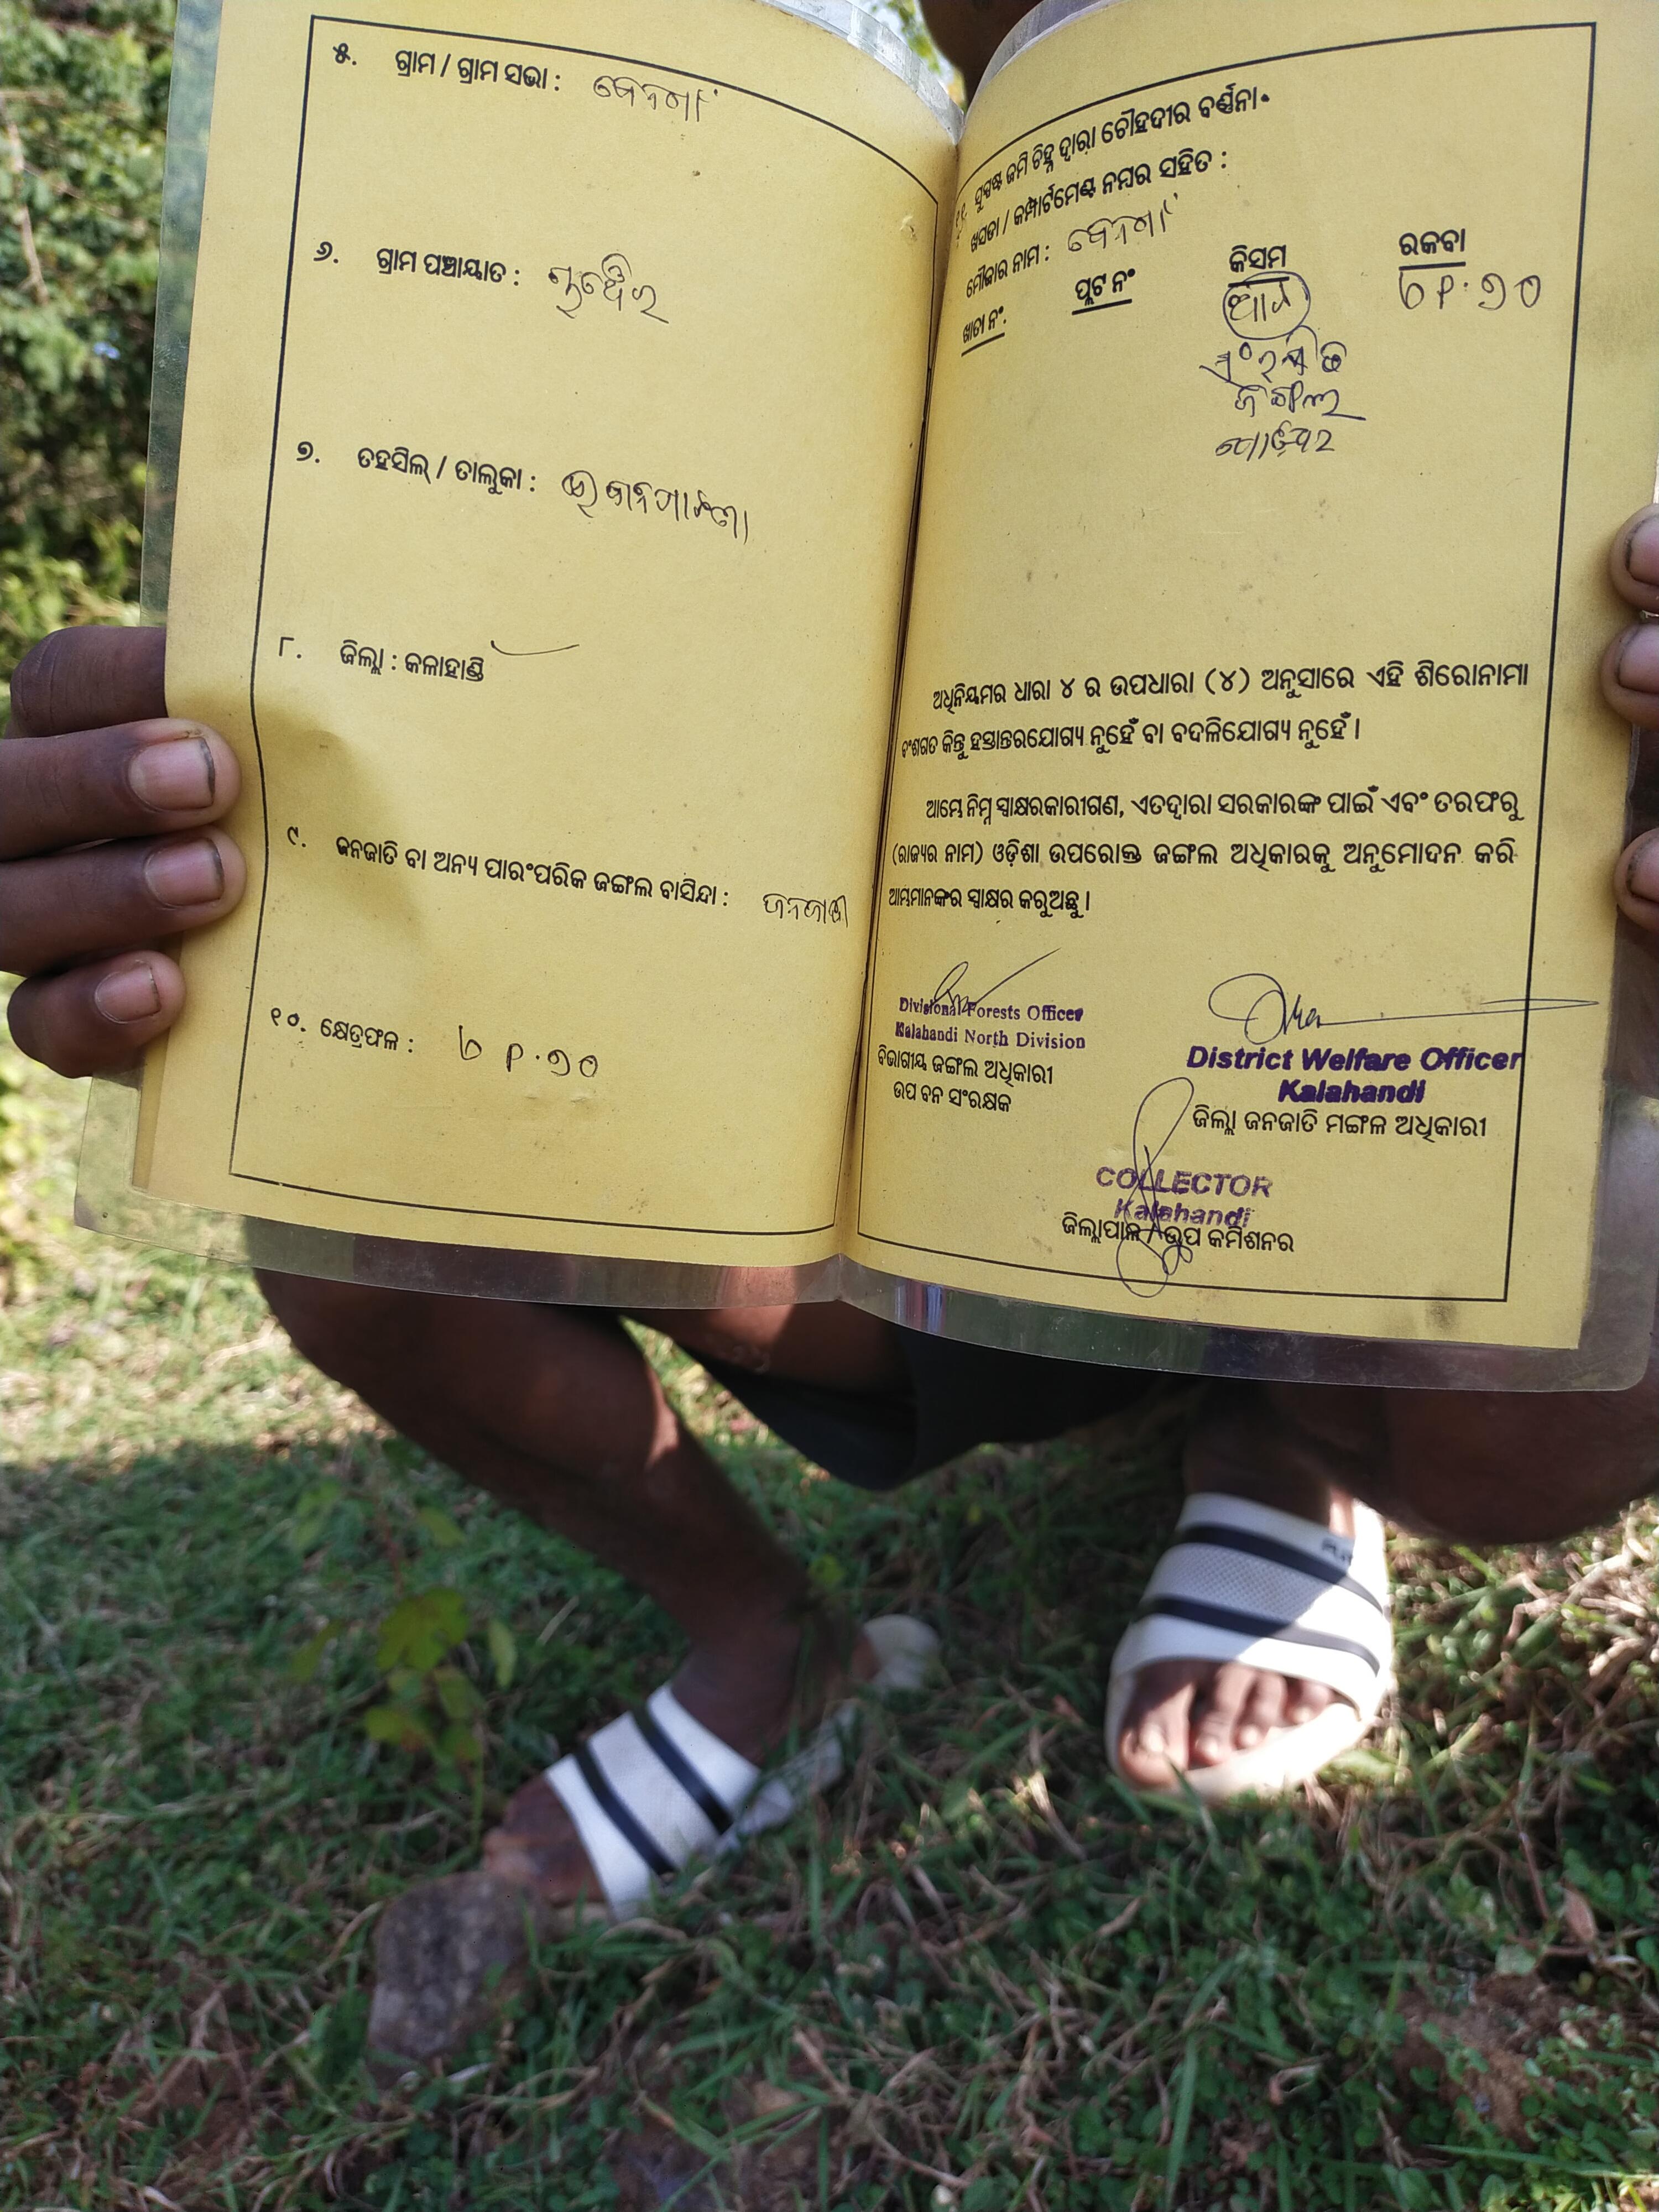 ୫. ଗ୍ରାମ / ଗ୍ରାମ ସଭା :
୬. ଗ୍ରାମ ପଞ୍ଚାୟାତ :
୭. ତହସିଲ୍ / ତାଲୁକା :
୮. ଜିଲ୍ଲା : କଳାହାଣ୍ଡି
୯. ଜନଜାତି ବା ଅନ୍ୟ ପାରଂପରିକ ଜଙ୍ଗଲ ବାସିନ୍ଦା : ଜନଜାତି
୧୦. କ୍ଷେତ୍ରଫଳ :
୧୧. ସୁସ୍ପଷ୍ଟ ଜମି ଚିହ୍ନ ଦ୍ୱାରା ଚୌହଦୀର ବର୍ଣ୍ଣନା
ଖସଡା / କମ୍ପାର୍ଟମେଣ୍ଟ ନମ୍ବର ସହିତ :
ମୌଜାର ନାମ :
ଖାତା ନଂ. ପ୍ଲଟ ନଂ କିସମ ରକବା
ସଂରକ୍ଷିତ
ଜଙ୍ଗଲ
ଅଧିନିୟମର ଧାରା ୪ ର ଉପଧାରା (୪) ଅନୁସାରେ ଏହି ଶିରୋନାମା
ବଂଶଗତ କିନ୍ତୁ ହସ୍ତାନ୍ତରଯୋଗ୍ୟ ନୁହେଁ ବା ବଦଳିଯୋଗ୍ୟ ନୁହେଁ ।
ଆମ୍ଭେ ନିମ୍ନ ସ୍ୱାକ୍ଷରକାରୀଗଣ, ଏତଦ୍ଦ୍ୱାରା ସରକାରଙ୍କ ପାଇଁ ଏବଂ ତରଫରୁ
(ରାଜ୍ୟର ନାମ) ଓଡ଼ିଶା ଉପରୋକ୍ତ ଜଙ୍ଗଲ ଅଧିକାରକୁ ଅନୁମୋଦନ କରି
ଆମ୍ଭମାନଙ୍କର ସ୍ୱାକ୍ଷର କରୁଅଛୁ ।
Divisional Forests Officer
Kalahandi North Division
ବିଭାଗୀୟ ଜଙ୍ଗଲ ଅଧିକାରୀ
ଉପ ବନ ସଂରକ୍ଷକ
District Welfare Officer
Kalahandi
ଜିଲ୍ଲା ଜନଜାତି ମଙ୍ଗଳ ଅଧିକାରୀ
COLLECTOR
Kalahandi
ଜିଲ୍ଲାପାଳ / ଉପ କମିଶନର